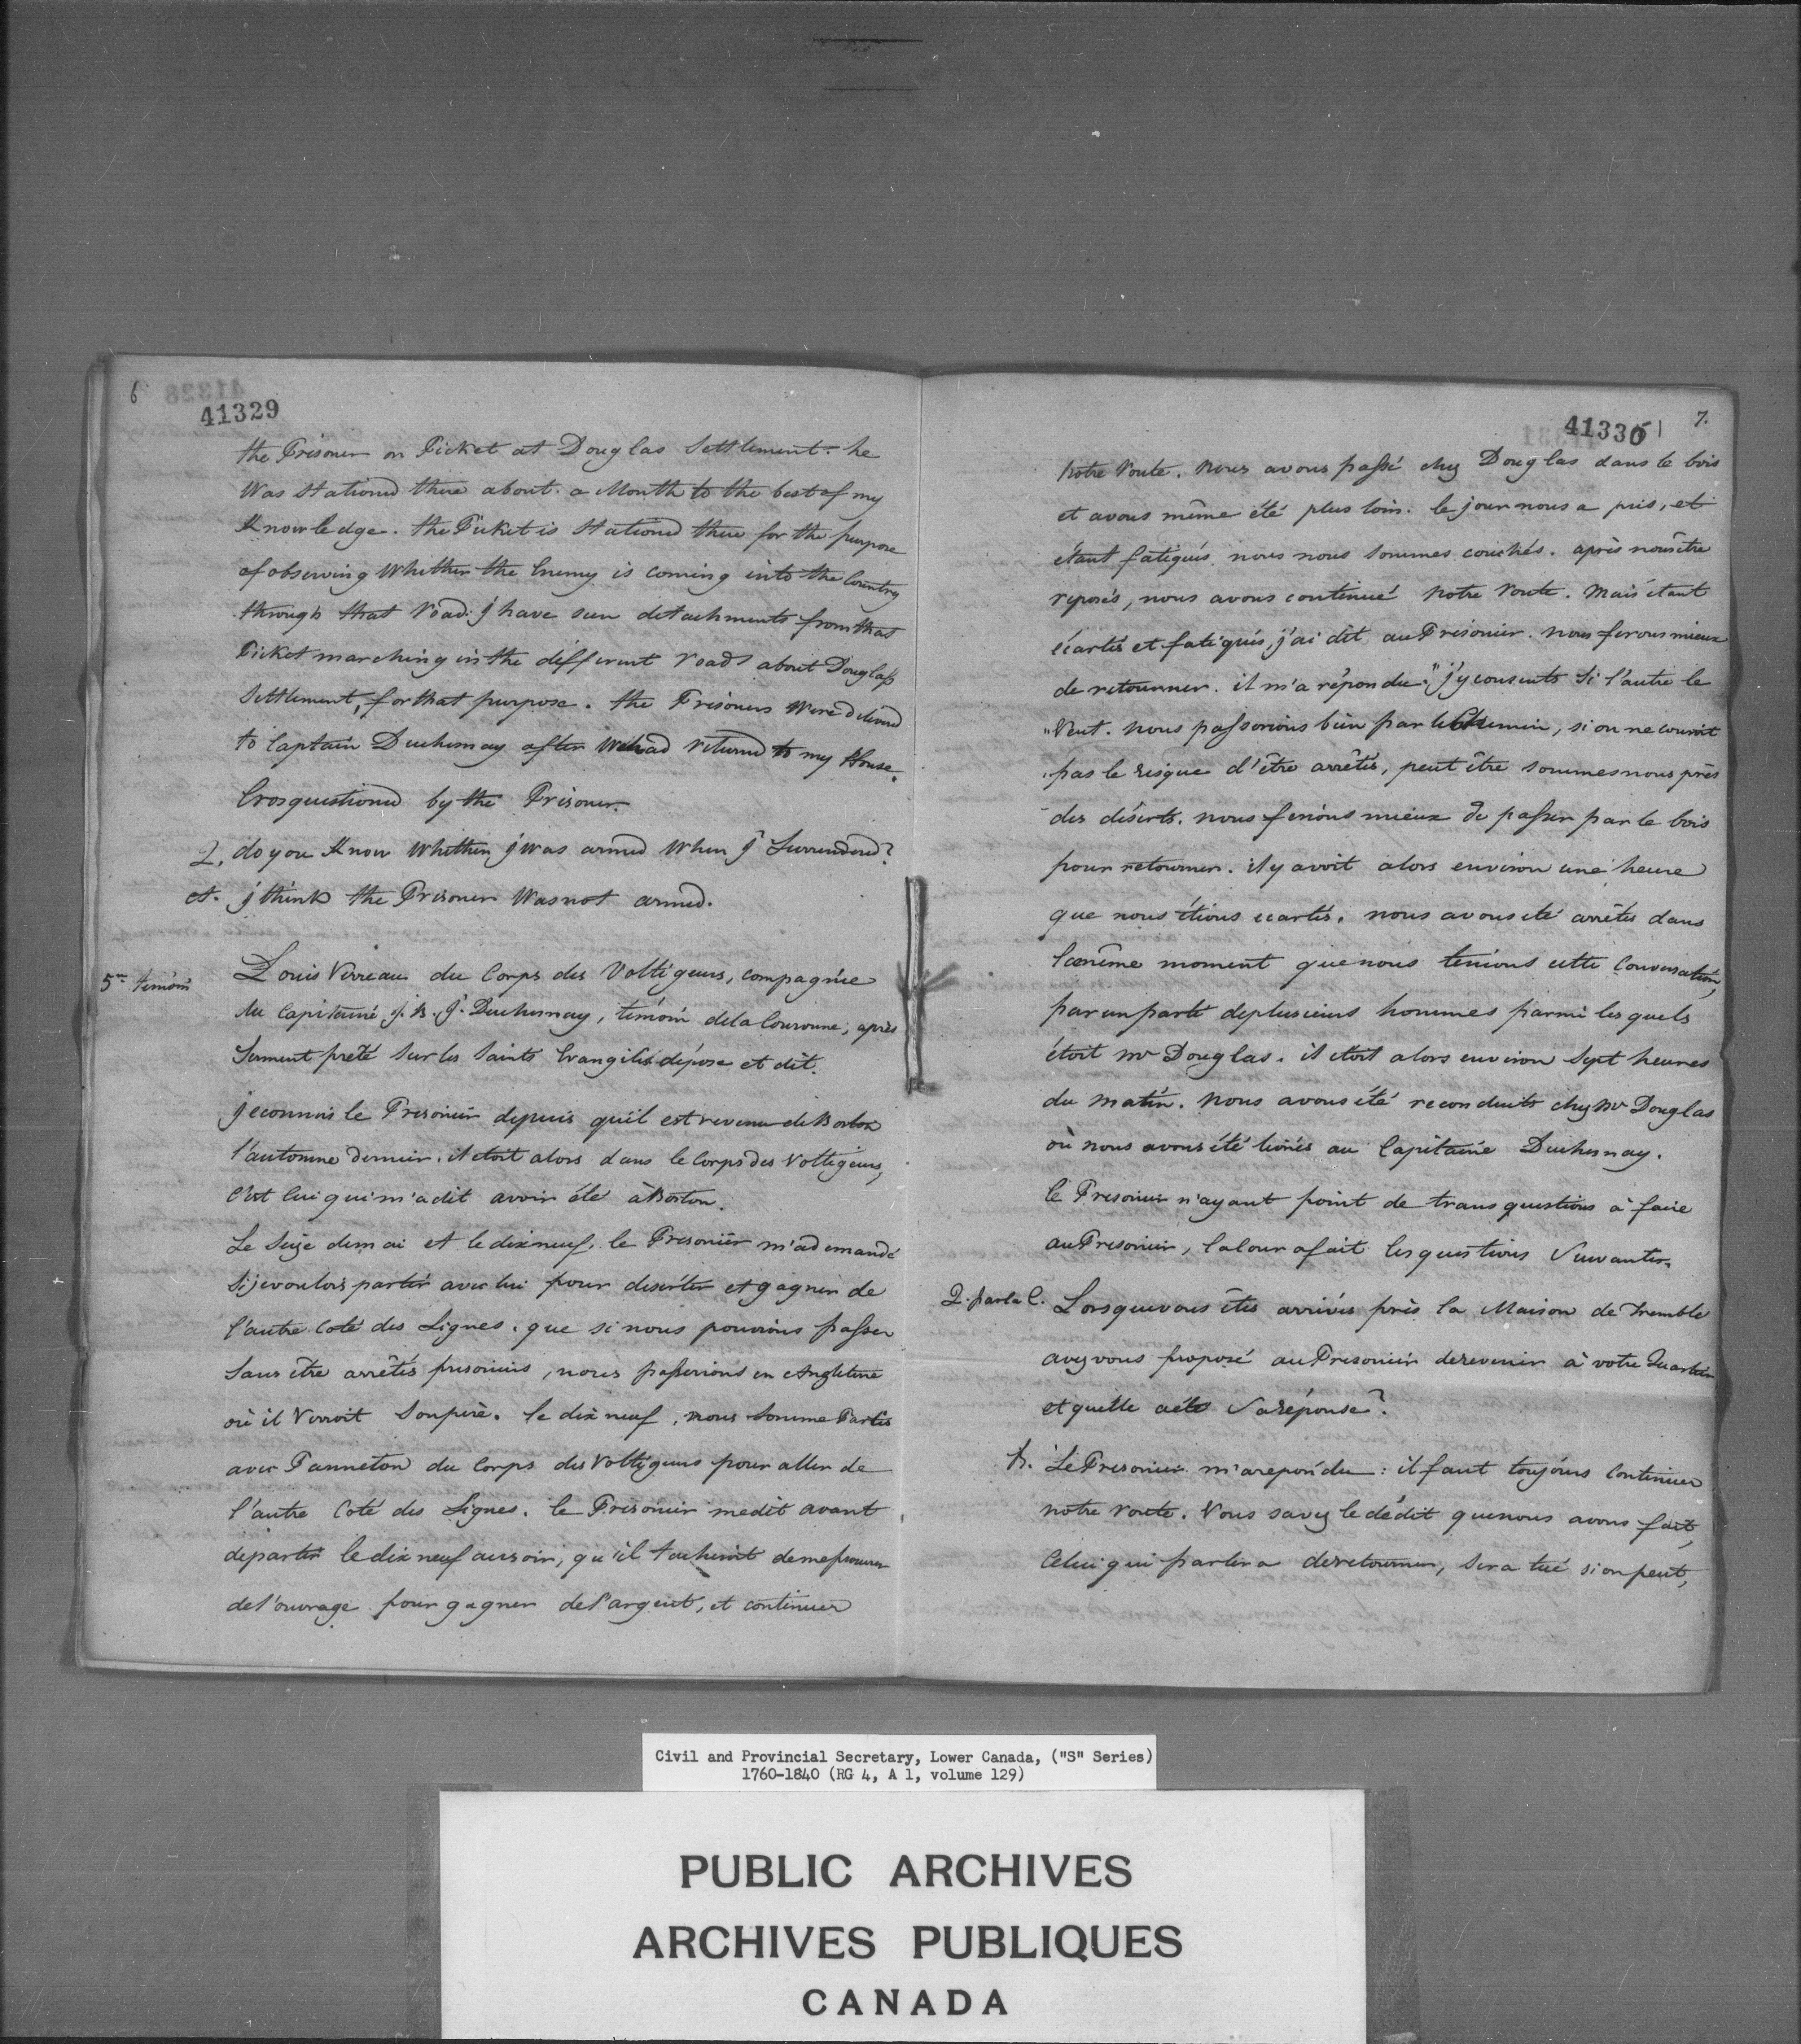 6
41329
the Prisoner on Picket at Douglas Settlement. he
Was stationed there about a Month to the best of my
Knowledge. the Picket is stationed there for the purpose
of observing Whether the Enemy is coming into the Country
through that road. j have seen detachments from that
Picket marching in the different roads about Douglass
Settlement, for that purpose. the Prisoners were delivered
to Captain Duchesnay after had returned to my House.
Crosquestioned by the Prisoner.
Q. do you Know Whether j was armed When j Surrendered?
A. j think the Prisoner Was not armed.
5me témoin
Louis Verreau du Corps des Voltigeurs, compagnie
du Capitaine j. B. J. Duchesnay, témoin dela Couronne, après
Serment preté Sur les Saints Evangiles dépose et dit.
je connois le Prisonier depuis qu'il est revenu de Boston
l'automne dernier. il etoit alors dans le Corps des Voltigeurs,
C'est lui qui m'a dit avoir été à Boston.
Le Seize de mai et le dix neuf, le Prisonier m'a demandé
Si je voulois partir avec lui pour deserter et gagner de
l'autre Coté des Lignes. que si nous pouvions passer
Sans être arrêtés prisoniers, nous passerions en Angleterre
où il Verroit Son père. le dix neuf, nous Somme Partis
avec Panneton du Corps des Voltigeurs pour aller de
l'autre Coté des Lignes. le Prisonier me dit avant
de partir le dix neuf au soir, qu'il tacheroit de me procurer
de l'ouvrage pour gagner de l'argent, et continuer
41330
7.
Notre Route. Nous avons passé chez Douglas dans le bois
et avons même été plus loin. le jour nous a pris, et
étant fatigués nous nous Sommes couchés. après nous être
reposés, nous avons continué Notre Route. Mais étant
écartés et fatigués, j'ai dit au Prisonier. Nous ferons mieux
de retourner. il m'a répondu "j'y consents Si l'autre le
"Veut. Nous passerions bien par le Chemin, si on ne couroit
pas le risque d'être arrêtés, peut être sommes nous près
des déserts. nous ferions mieux de passer par le bois
pour retourner. il y avoit alors environ une heure
que nous étions ecartés. nous avons eté arrêtés dans
le même moment que nous tenions cette Conversation,
par un parti de plusieurs hommes parmi les quels
étoit Mr Douglas. il etoit alors environ Sept heures
du matin. Nous avons été reconduits chez Mr Douglas
où nous avons été livrés au Capitaine Duchesnay.
le Prisonier n'ayant point de transquestions à faire
au Prisonier, la Cour a fait les questions Suivantes.
Q. par la C. Lorsque vous êtes arrivés près la Maison de Tremble
avez vous proposé au Prisonier de revenir à votre Quartier
et quelle a eté Sa réponse?
R. Le Prisonier m'a repondu: il faut toujours Continuer
notre route. Vous savez le dédit que nous avons fait,
Celui qui parlera de retourner, Sera tué si on peut,
Civil and Provincial Secretary, Lower Canada, ("S" Series)
1760-1840 (RG 4, A 1, volume 129)
PUBLIC ARCHIVES
ARCHIVES PUBLIQUES
CANADA